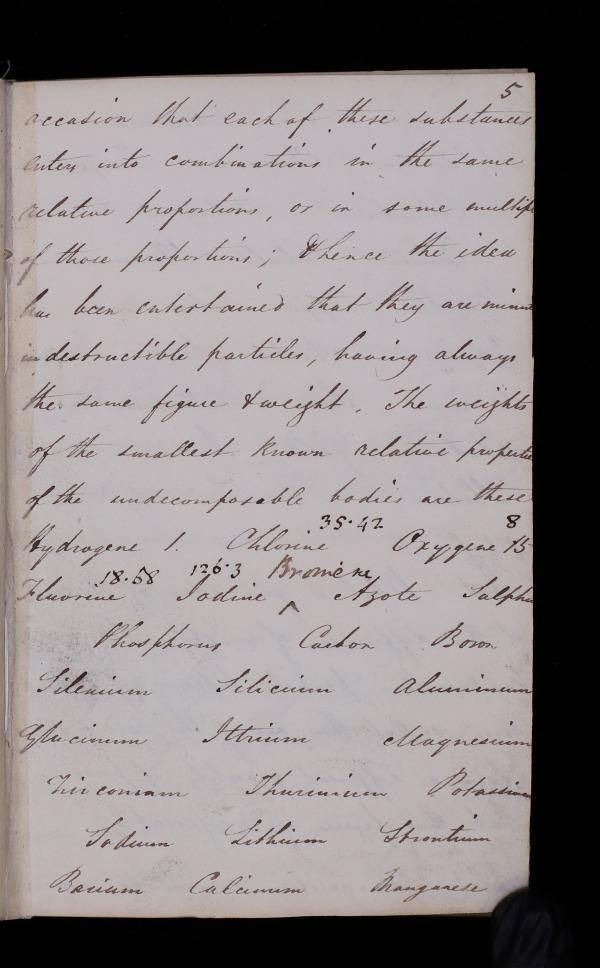 5
occasion that each of these substances
enters into combinations in the same
relative proportions, or in some multiple
of those proportions; & hence the idea
has been entertained that they are minute
indestructible particles, having always
the same figure & weight. The weights
of the smallest known relative properti
of the undecomposable bodies are these
35.42 8
Hydrogene 1. Chlorine Oxygene 15
18.58 126.3 Bromine
Fluorine Iodine ^ Azote Sulphu
Phosphorus Carbon Boron
Silenium Silicium Aluminum
Glucinum Ittrium Magnesium
Zirconium Thurinium Potassium
Sodium Lithium Strontium
Barium Calcinum Manganese